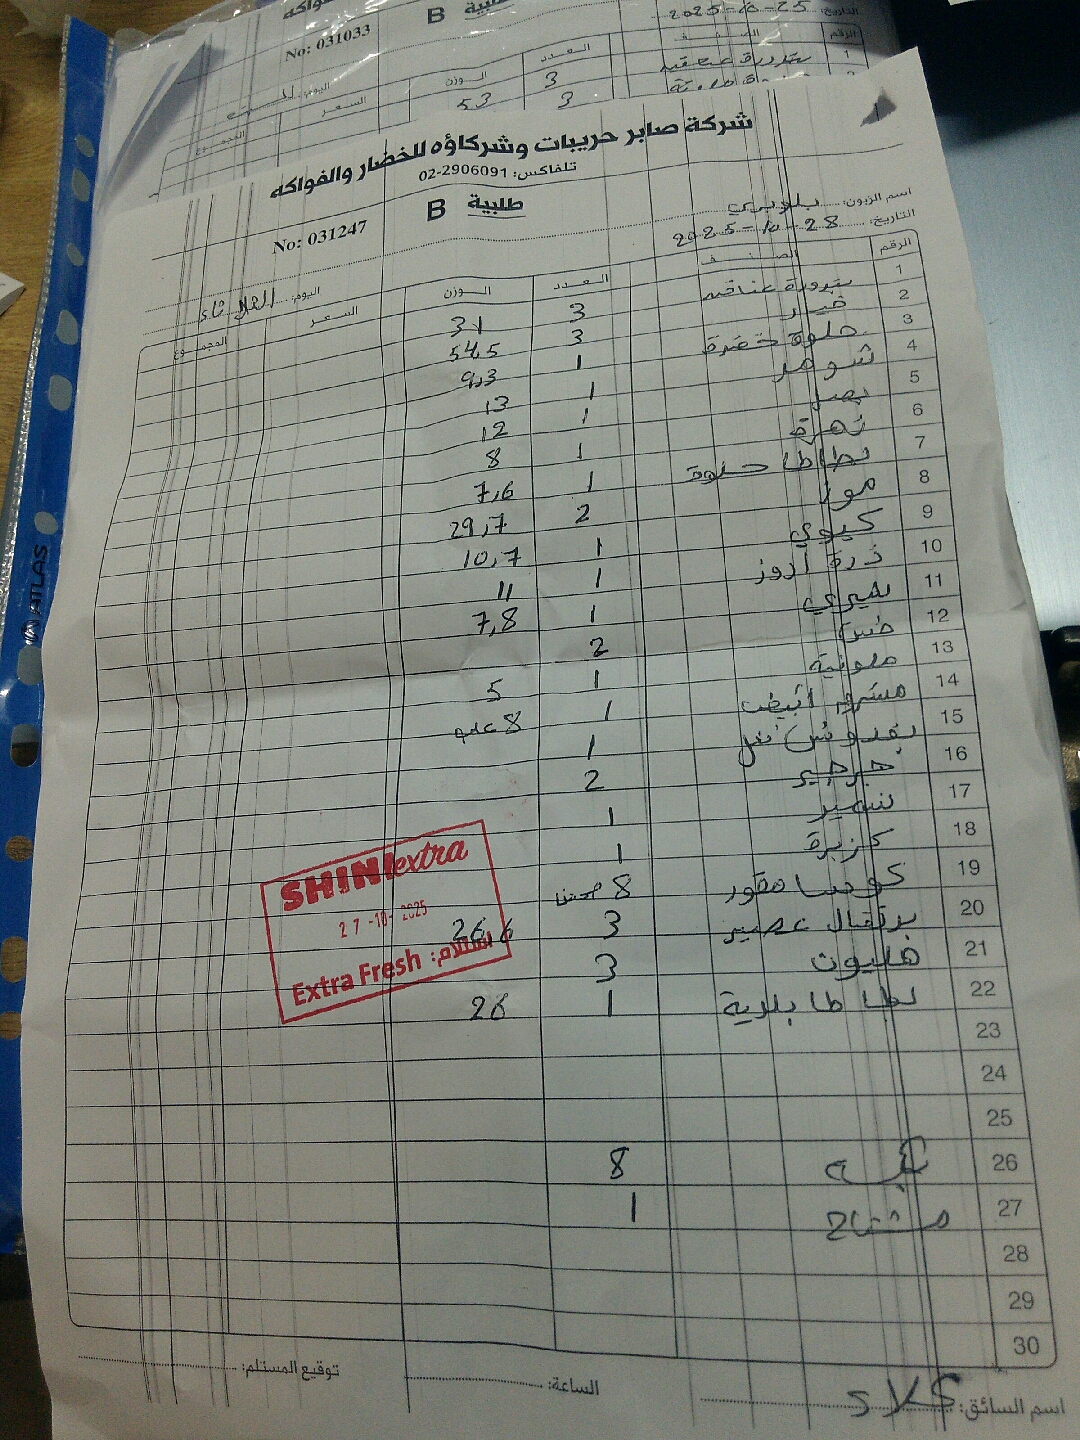 No: 031033
طلبية B
التاريخ: 2025-10-25
الرقم الصنف العدد الوزن السعر المجموع
اليوم:
1 بندورة عنقيد 3 53
3
شركة صابر حريبات وشركاؤه للخضار والفواكه
تلفاكس: 02-2906091
طلبية B
No: 031247
اسم الزبون:
التاريخ: 2025-10-28
اليوم: الثلاثاء
الرقم الصنف العدد الوزن السعر المجموع
1 بندورة عناقيد 3 31
2 خيار 3 54,5
3 حلوة خضرة 1 9,3
4 شومر 1 13
5 بصل 1 12
6 زهرة 1 8
7 بطاطا حلوة 1 7,6
8 موز 2 29,7
9 كيوي 1 10,7
10 ذرة 1 11
11 1 7,8
12 خس 2
13 ملونة 1 5
14 مشروم ابيض 1 8 علب
15 بقدونس 1
16 جرجير 2
17 1
18 كزبرة 1
19 كوسا مقور 8
20 برتقال عصير 3 26,6
21 هليون 3
22 بطاطا بلدية 1 26
23
24
25
26 8
27 مشتاح 1
28
29
30
SHINI extra
27-10-2025
استلام: Extra Fresh
اسم السائق:
الساعة:
توقيع المستلم:
ATLAS